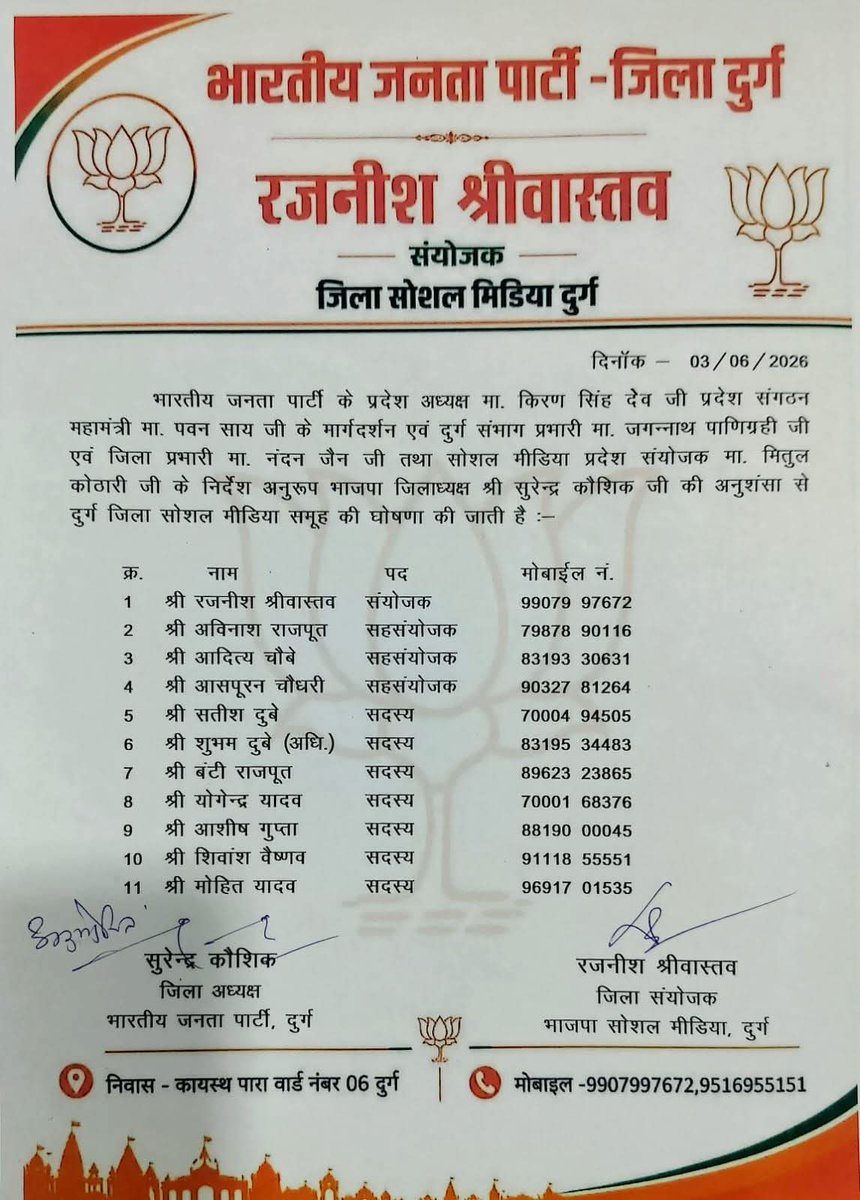 भारतीय जनता पार्टी -जिला दुर्ग
रजनीश श्रीवास्तव
संयोजक
जिला सोशल मिडिया दुर्ग
दिनॉक – 03/06/2026
भारतीय जनता पार्टी के प्रदेश अध्यक्ष मा. किरण सिंह देव जी प्रदेश संगठन
महामंत्री मा. पवन साय जी के मार्गदर्शन एवं दुर्ग संभाग प्रभारी मा. जगन्नाथ पाणिग्रही जी
एवं जिला प्रभारी मा. नंदन जैन जी तथा सोशल मीडिया प्रदेश संयोजक मा. मितुल
कोठारी जी के निर्देश अनुरूप भाजपा जिलाध्यक्ष श्री सुरेन्द्र कौशिक जी की अनुशंसा से
दुर्ग जिला सोशल मीडिया समूह की घोषणा की जाती है :–
क्र. नाम पद मोबाईल नं.
1 श्री रजनीश श्रीवास्तव संयोजक 99079 97672
2 श्री अविनाश राजपूत सहसंयोजक 79878 90116
3 श्री आदित्य चौबे सहसंयोजक 83193 30631
4 श्री आसपूरन चौधरी सहसंयोजक 90327 81264
5 श्री सतीश दुबे सदस्य 70004 94505
6 श्री शुभम दुबे (अधि.) सदस्य 83195 34483
7 श्री बंटी राजपूत सदस्य 89623 23865
8 श्री योगेन्द्र यादव सदस्य 70001 68376
9 श्री आशीष गुप्ता सदस्य 88190 00045
10 श्री शिवांश वैष्णव सदस्य 91118 55551
11 श्री मोहित यादव सदस्य 96917 01535
सुरेन्द्र कौशिक
जिला अध्यक्ष
भारतीय जनता पार्टी, दुर्ग
रजनीश श्रीवास्तव
जिला संयोजक
भाजपा सोशल मीडिया, दुर्ग
निवास - कायस्थ पारा वार्ड नंबर 06 दुर्ग
मोबाइल -9907997672,9516955151